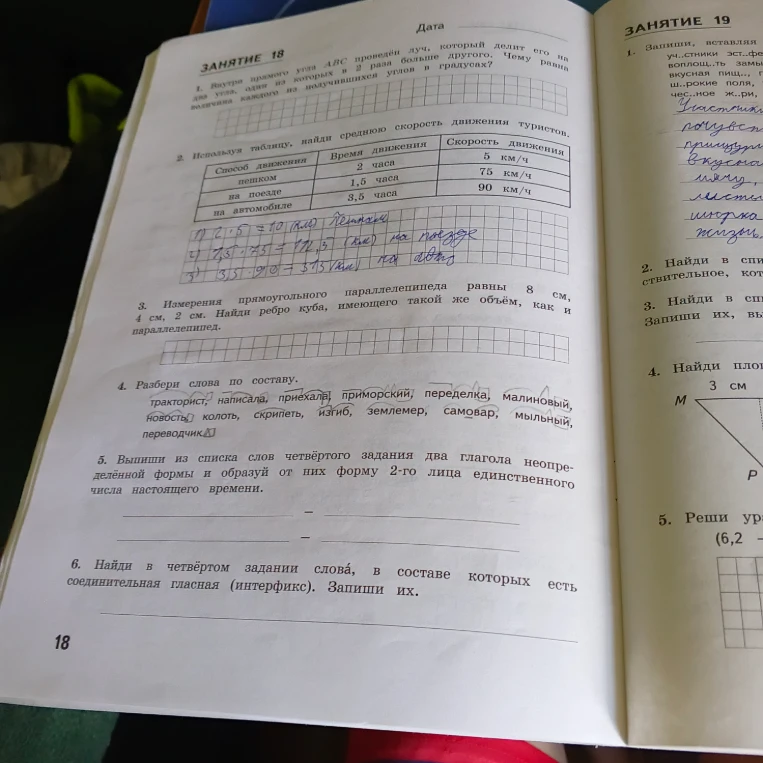 Дата
ЗАНЯТИЕ 18
1. Внутри прямого угла ABC проведён луч, который делит его на
два угла, один из которых в 2 раза больше другого. Чему равна
величина каждого из получившихся углов в градусах?
2. Используя таблицу, найди среднюю скорость движения туристов.
Способ движения Время движения Скорость движения
пешком 2 часа 5 км/ч
на поезде 1,5 часа 75 км/ч
на автомобиле 3,5 часа 90 км/ч
1) 2 · 5 = 10 (км) пешком
2) 1,5 · 75 = 112,5 (км) на поезде
3) 3,5 · 90 = 315 (км) на авто
3. Измерения прямоугольного параллелепипеда равны 8 см,
4 см, 2 см. Найди ребро куба, имеющего такой же объём, как и
параллелепипед.
4. Разбери слова по составу.
тракторист, написала, приехала, приморский, переделка, малиновый,
новость, колоть, скрипеть, изгиб, землемер, самовар, мыльный,
переводчик.
5. Выпиши из списка слов четвёртого задания два глагола неопре-
делённой формы и образуй от них форму 2-го лица единственного
числа настоящего времени.
–
–
6. Найди в четвёртом задании слова́, в составе которых есть
соединительная гласная (интерфикс). Запиши их.
18
ЗАНЯТИЕ 19
1. Запиши, вставляя
уч..стники эст..фе
воплощ..ть замы
вкусная пищ..,
ш..рокие поля,
чес..ное ж..ри,
вкусна
жизнь
2. Найди в спи
ствительное, кот
3. Найди в сп
Запиши их, вы
4. Найди пло
3 см
M
P
5. Реши ур
(6,2 –